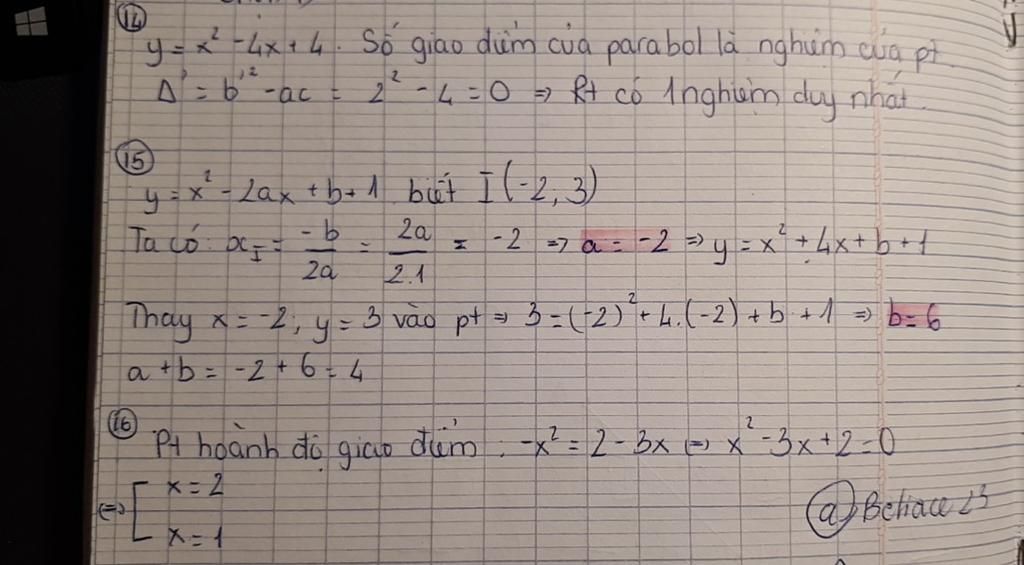 14
y = x² - 4x + 4. Số giao điểm của parabol là nghiệm của pt
Δ' = b'² - ac = 2² - 4 = 0 => Pt có 1 nghiệm duy nhất.
15
y = x² - 2ax + b + 1 biết I(-2, 3)
Ta có: x_I = -b/2a = 2a/2.1 = -2 => a = -2 => y = x² + 4x + b + 1
Thay x = -2; y = 3 vào pt => 3 = (-2)² + 4.(-2) + b + 1 => b = 6
a + b = -2 + 6 = 4
16
Pt hoành độ giao điểm: -x² = 2 - 3x <=> x² - 3x + 2 = 0
<=> [ x = 2
x = 1